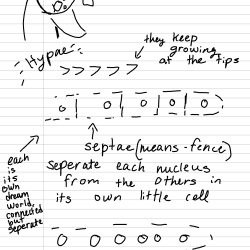 they keep
growing
at the tips
Hypae
septae (means - fence)
seperate each nucleus
from the others in
its own little cell
each
is
its
own
dream
world,
connected
but
seperate